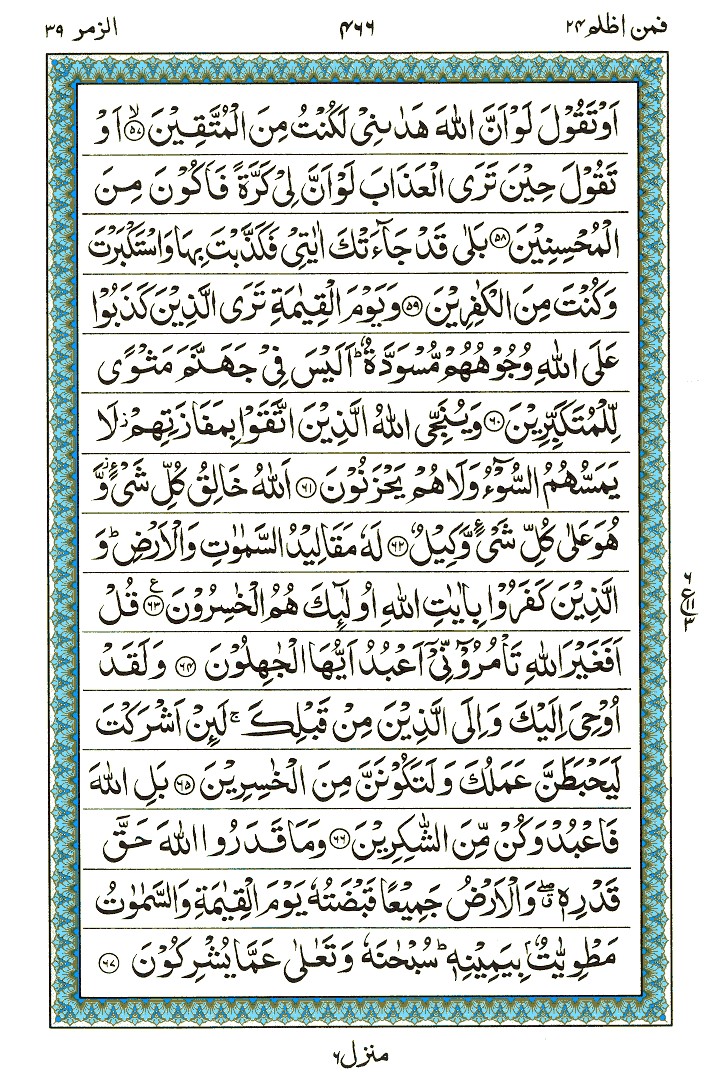 فمن اظلم ٢٤ ٤٦٦ الزمر ٣٩
اَوْ تَقُوْلَ لَوْ اَنَّ اللّٰهَ هَدٰىنِیْ لَكُنْتُ مِنَ الْمُتَّقِیْنَ ۙ﴿۵۷﴾ اَوْ
تَقُوْلَ حِیْنَ تَرَی الْعَذَابَ لَوْ اَنَّ لِیْ كَرَّةً فَاَكُوْنَ مِنَ
الْمُحْسِنِیْنَ ﴿۵۸﴾ بَلٰی قَدْ جَآءَتْكَ اٰیٰتِیْ فَكَذَّبْتَ بِهَا وَاسْتَكْبَرْتَ
وَكُنْتَ مِنَ الْكٰفِرِیْنَ ﴿۵۹﴾ وَیَوْمَ الْقِیٰمَةِ تَرَی الَّذِیْنَ كَذَبُوْا
عَلَی اللّٰهِ وُجُوْهُهُمْ مُّسْوَدَّةٌ ؕ اَلَیْسَ فِیْ جَهَنَّمَ مَثْوًی
لِّلْمُتَكَبِّرِیْنَ ﴿۶۰﴾ وَیُنَجِّی اللّٰهُ الَّذِیْنَ اتَّقَوْا بِمَفَازَتِهِمْ ؗ لَا
یَمَسُّهُمُ السُّوْٓءُ وَلَا هُمْ یَحْزَنُوْنَ ﴿۶۱﴾ اَللّٰهُ خَالِقُ كُلِّ شَیْءٍ ؗ وَّ
هُوَ عَلٰی كُلِّ شَیْءٍ وَّكِیْلٌ ﴿۶۲﴾ لَهٗ مَقَالِیْدُ السَّمٰوٰتِ وَالْاَرْضِ ؕ وَ
الَّذِیْنَ كَفَرُوْا بِاٰیٰتِ اللّٰهِ اُولٰٓئِكَ هُمُ الْخٰسِرُوْنَ ﴿۶۳﴾ ع قُلْ
اَفَغَیْرَ اللّٰهِ تَاْمُرُوْٓنِّیْۤ اَعْبُدُ اَیُّهَا الْجٰهِلُوْنَ ﴿۶۴﴾ وَلَقَدْ
اُوْحِیَ اِلَیْكَ وَاِلَی الَّذِیْنَ مِنْ قَبْلِكَ ۚ لَىِٕنْ اَشْرَكْتَ
لَیَحْبَطَنَّ عَمَلُكَ وَلَتَكُوْنَنَّ مِنَ الْخٰسِرِیْنَ ﴿۶۵﴾ بَلِ اللّٰهَ
فَاعْبُدْ وَكُنْ مِّنَ الشّٰكِرِیْنَ ﴿۶۶﴾ وَمَا قَدَرُوا اللّٰهَ حَقَّ
قَدْرِهٖ ۖۗ وَالْاَرْضُ جَمِیْعًا قَبْضَتُهٗ یَوْمَ الْقِیٰمَةِ وَالسَّمٰوٰتُ
مَطْوِیّٰتٌۢ بِیَمِیْنِهٖ ؕ سُبْحٰنَهٗ وَتَعٰلٰی عَمَّا یُشْرِكُوْنَ ﴿۶۷﴾
٦
ع ١١
٣
منزل ٦